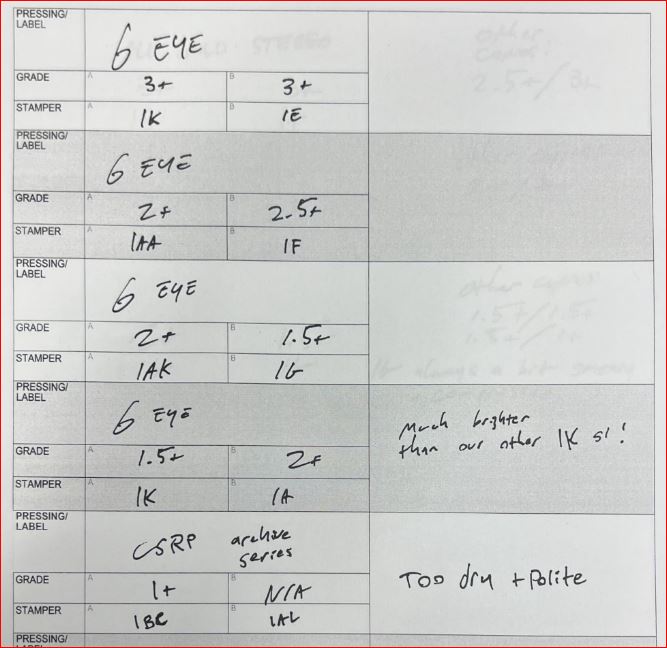 PRESSING/
LABEL
6 EYE
GRADE A 3+ B 3+
STAMPER A 1K B 1E
PRESSING/
LABEL
6 EYE
GRADE A 2+ B 2.5+
STAMPER A 1AA B 1F
PRESSING/
LABEL
6 EYE
GRADE A 2+ B 1.5+
STAMPER A 1AK B 1G
PRESSING/
LABEL
6 EYE
Much brighter
than our other 1K s1!
GRADE A 1.5+ B 2+
STAMPER A 1K B 1A
PRESSING/
LABEL
CSRP archive
series
Too dry + Polite
GRADE A 1+ B N/A
STAMPER A 1BC B 1AL
PRESSING/